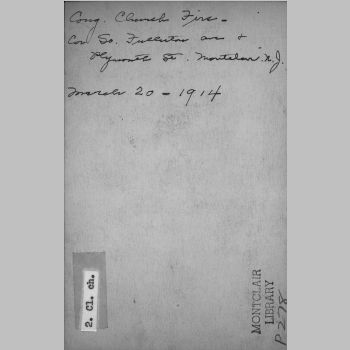 Cong. Church Fire -
Cor So. Fullerton av &
Plymouth St. Montclair N.J.
March 20 - 1914
2. Cl. ch.
MONTCLAIR
LIBRARY
P278